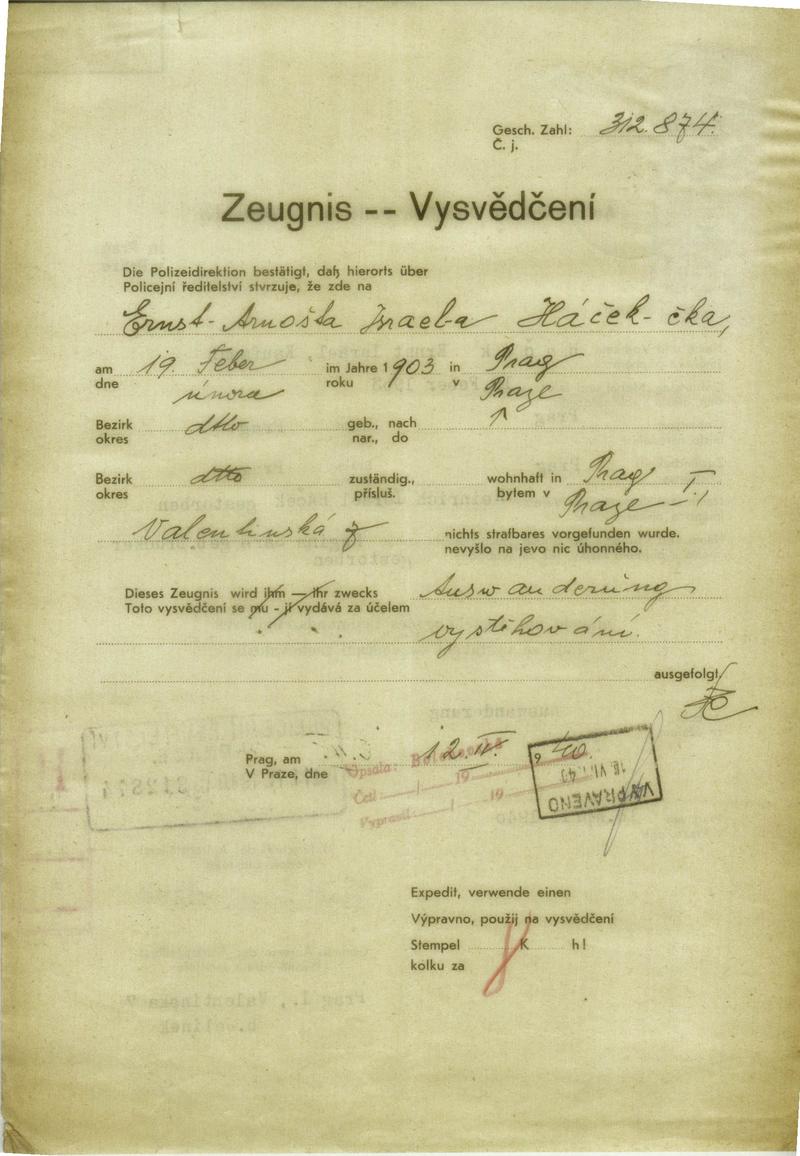 Gesch. Zahl: 312.874.
Č. j.
Zeugnis -- Vysvědčení
Die Polizeidirektion bestätigt, daß hierorts über
Policejní ředitelství stvrzuje, že zde na
Ernst- Arnošta Israel-a Háček- čka,
am 19. Feber im Jahre 1903 in Prag
dne února roku v Praze
Bezirk dtto geb., nach
okres nar., do
Bezirk dtto zuständig., wohnhaft in Prag
okres přísluš. bytem v Praze I.,
Valentinská 7 nichts strafbares vorgefunden wurde.
nevyšlo na jevo nic úhonného.
Dieses Zeugnis wird ihm — ihr zwecks Auswanderung
Toto vysvědčení se mu - jí vydává za účelem
vystěhování.
ausgefolgt
Prag, am 12. 40.
V Praze, dne
Opsala:
Četl 19
Vypravil 19
VYPRAVENO
18. VI. 40
Expedit, verwende einen
Výpravno, použij na vysvědčení
Stempel 8 K h!
kolku za